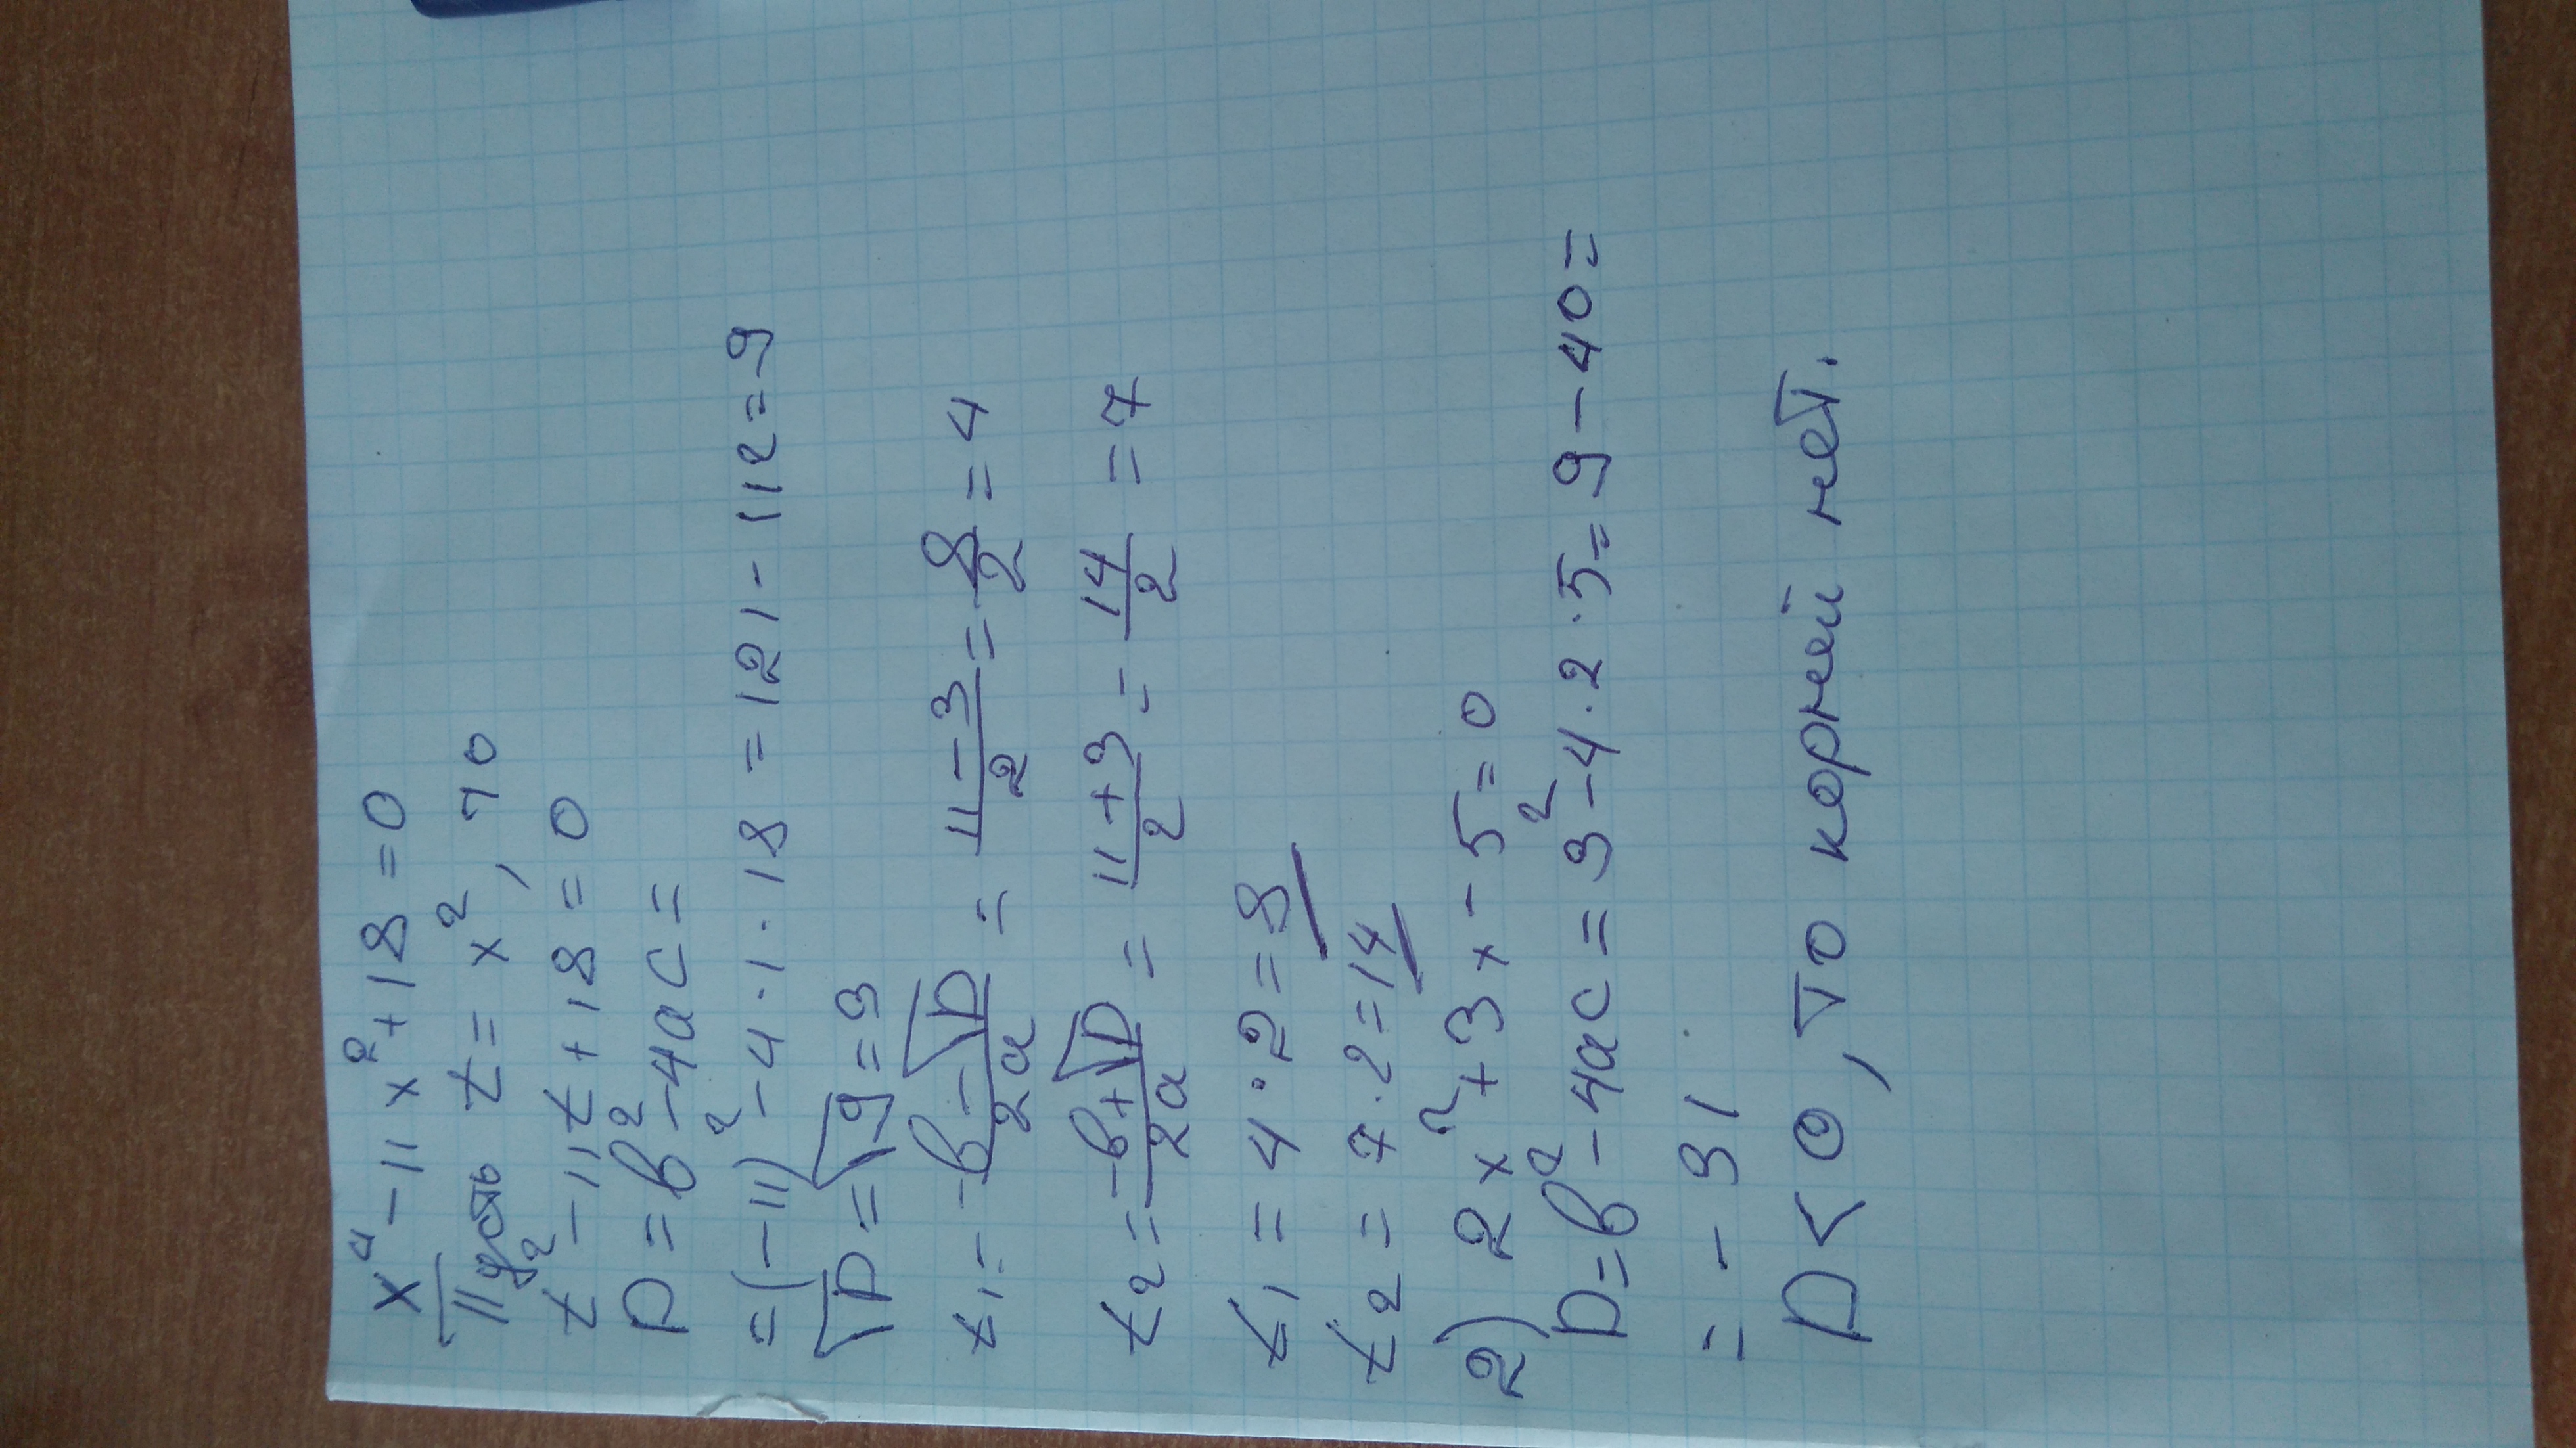 x⁴ - 11x² + 18 = 0
Пусть t = x², 70
t² - 11t + 18 = 0
D = b² - 4ac =
= (-11)² - 4 · 1 · 18 = 121 - 112 = 9
√D = √9 = 3
t₁ = (-b - √D)/2a = (11 - 3)/2 = 8/2 = 4
t₂ = (-b + √D)/2a = (11 + 3)/2 = 14/2 = 7
t₁ = 4 · 2 = 8
t₂ = 7 · 2 = 14
2) 2x² + 3x - 5 = 0
D = b² - 4ac = 3² - 4 · 2 · 5 = 9 - 40 =
= - 31
D < 0, то корней нет.